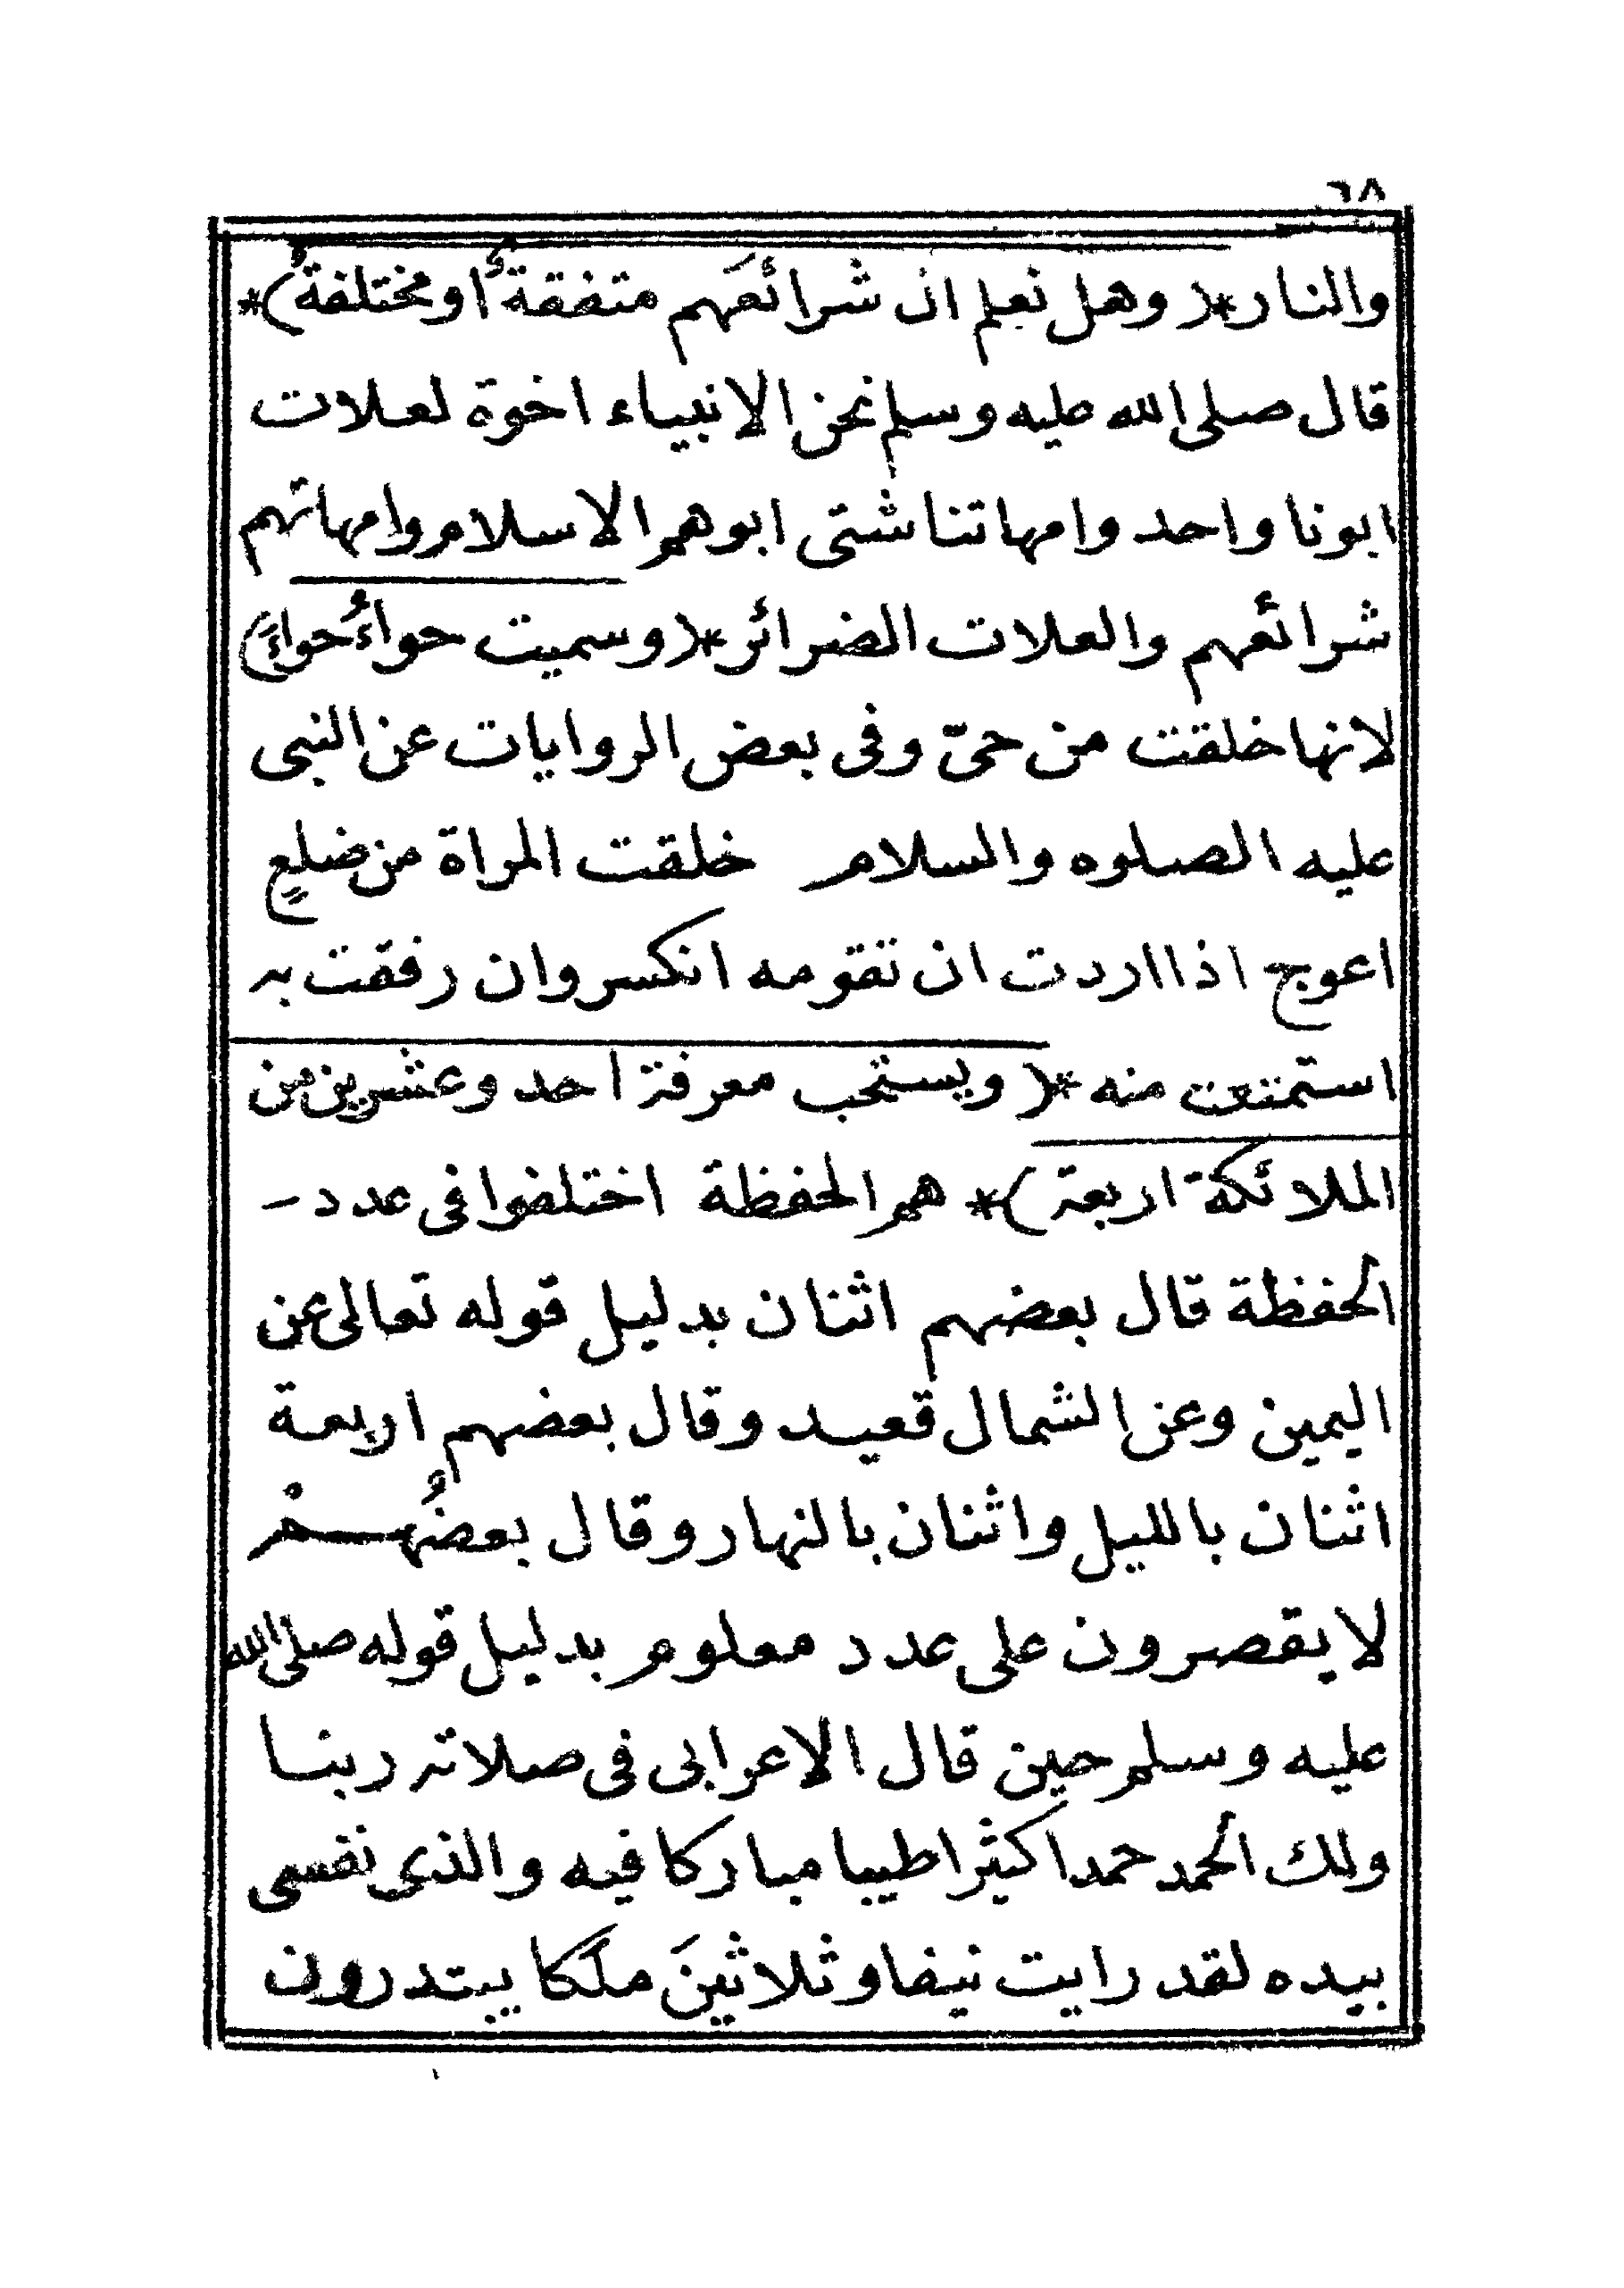 ٦٨
والنار *( وهل نعلم ان شرائعَهم متفقةٌ أو مختلفةٌ )*
قال صلى الله عليه وسلم نحن الانبياء اخوة لعلات
ابونا واحد وامهاتنا شتى ابوهم الاسلام وامهاتهم
شرائعهم والعلات الضرائر *( وسميت حواءُ حواءً )
لانها خلقت من حىّ وفى بعض الروايات عن النبى
عليه الصلوه والسلام خلقت المراة من ضلعٍ
اعوج اذا اردت ان تقومه انكسر وان رفقت به
استمتعت منه *( ويستحب معرفة احد وعشرين من
الملائكة اربعة )* هم الحفظة اختلفوا فى عدد -
الحفظة قال بعضهم اثنان بدليل قوله تعالى عن
اليمين وعن الشمال قعيد وقال بعضهم اربعة
اثنان بالليل واثنان بالنهار وقال بعضُهمْ
لا يقصرون على عدد معلوم بدليل قوله صلى الله
عليه وسلم حين قال الاعرابى فى صلاته ربنا
ولك الحمد حمدا كثيرا طيبا مباركا فيه والذى نفسى
بيده لقد رايت نيفا وثلاثينَ ملَكا يبتدرون